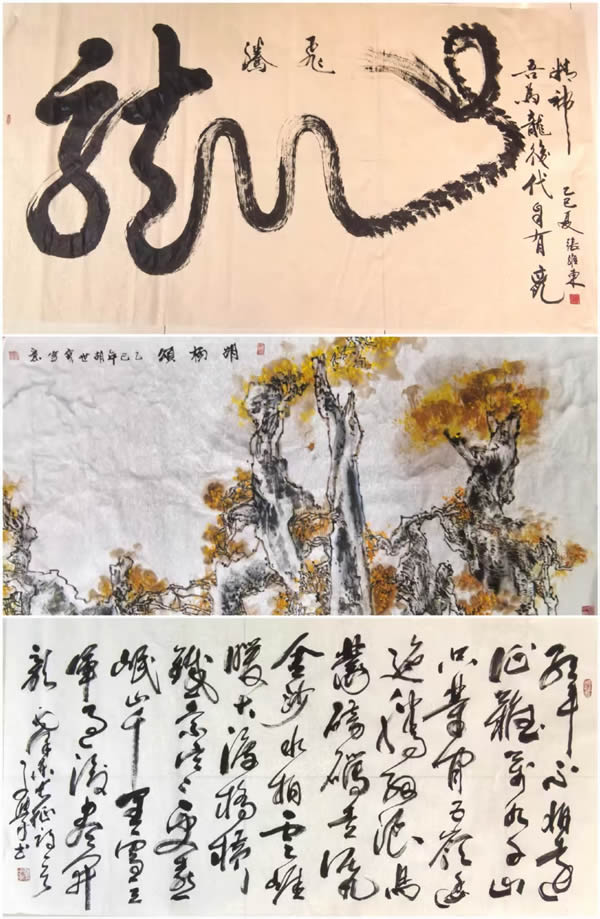 龍
飛騰
吾為龍後代自有龍
精神
乙巳夏張維東
胡楊頌 乙巳年 世 寫意
紅軍不怕遠
征難萬水千山
只等閒五嶺逶
迤騰細浪烏
蒙磅礴走泥丸
金沙水拍雲崖
暖大渡橋橫
鐵索寒更喜
岷山千里雪三
軍過後盡開
顏 毛澤東長征詩一首
书